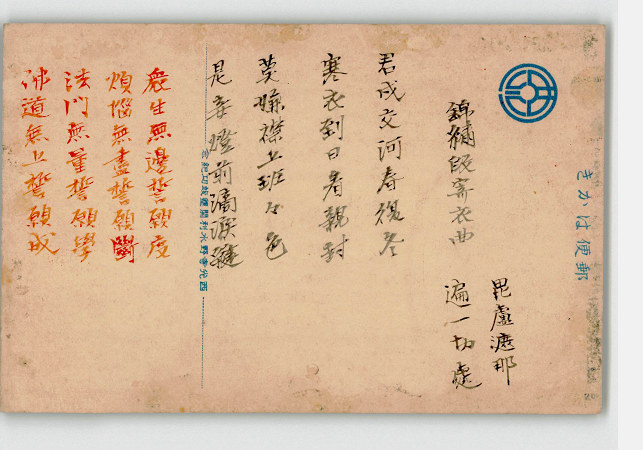 きかは便郵
毘盧遮那
遍一切處
錦繡段寄衣曲
君戍交河春復冬
寒衣到日看親封
莫嫌襟上班々色
是妾燈前滴淚縫
衆生無邊誓願度
煩惱無盡誓願斷
法門無量誓願學
佛道無上誓願成